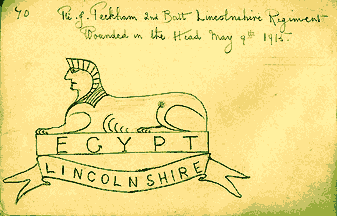 40
Pte J. Peckham 2nd Batt Lincolnshire Regiment
Wounded in the Head May 9th 1915.
EGYPT
LINCOLNSHIRE